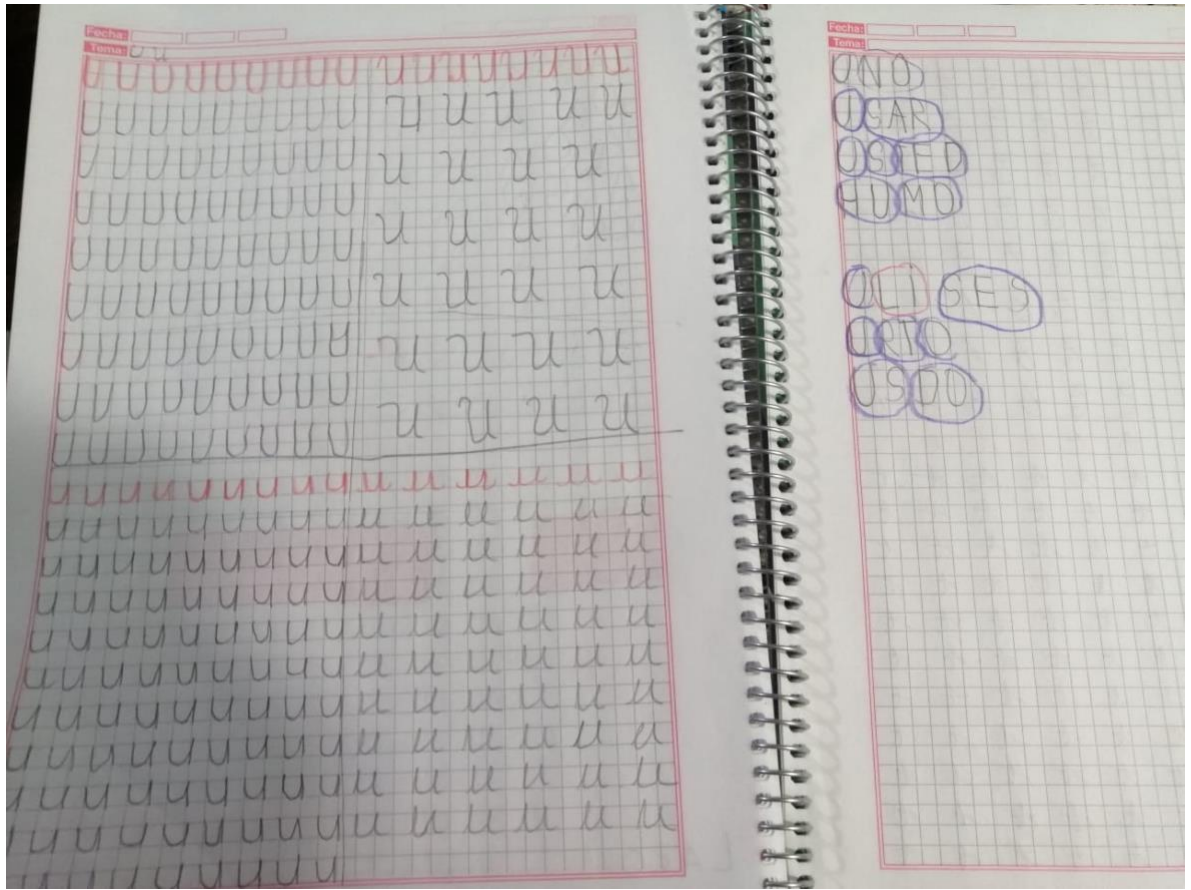 Fecha:
Tema: Uu
U U U U U U U U U U U U U U U U U U U
U U U U U U U U U U U U U U U U
U U U U U U U U U U U U U U U
U U U U U U U U U U U U U U U
U U U U U U U U U U U
U U U U U U U U U U U U U U U
U U U U U U U U U U U U U U U
U U U U U U U U U U U
U U U U U U U U U U U U U U U
u u u u u u u u u u u u u u u u u
u u u u u u u u u u u u u u u u u
u u u u u u u u u u u u u u u u u
u u u u u u u u u u u u u u u u u
u u u u u u u u u u u u u u u u u
u u u u u u u u u u u u u u u u u
u u u u u u u u u u u u u u u u u
u u u u u u u u u u u u u u u u u u
u u u u u u u u u u u u u u u u u u
u u u u u u u u u u u u u u u u u u
u u u u u u u u u u
Fecha:
Tema:
UNO
USAR
USTED
HUMO
ULISES